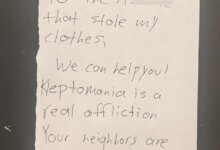 that stole my
clothes,
We can help you!
Kleptomania is a
real affliction.
Your neighbors are